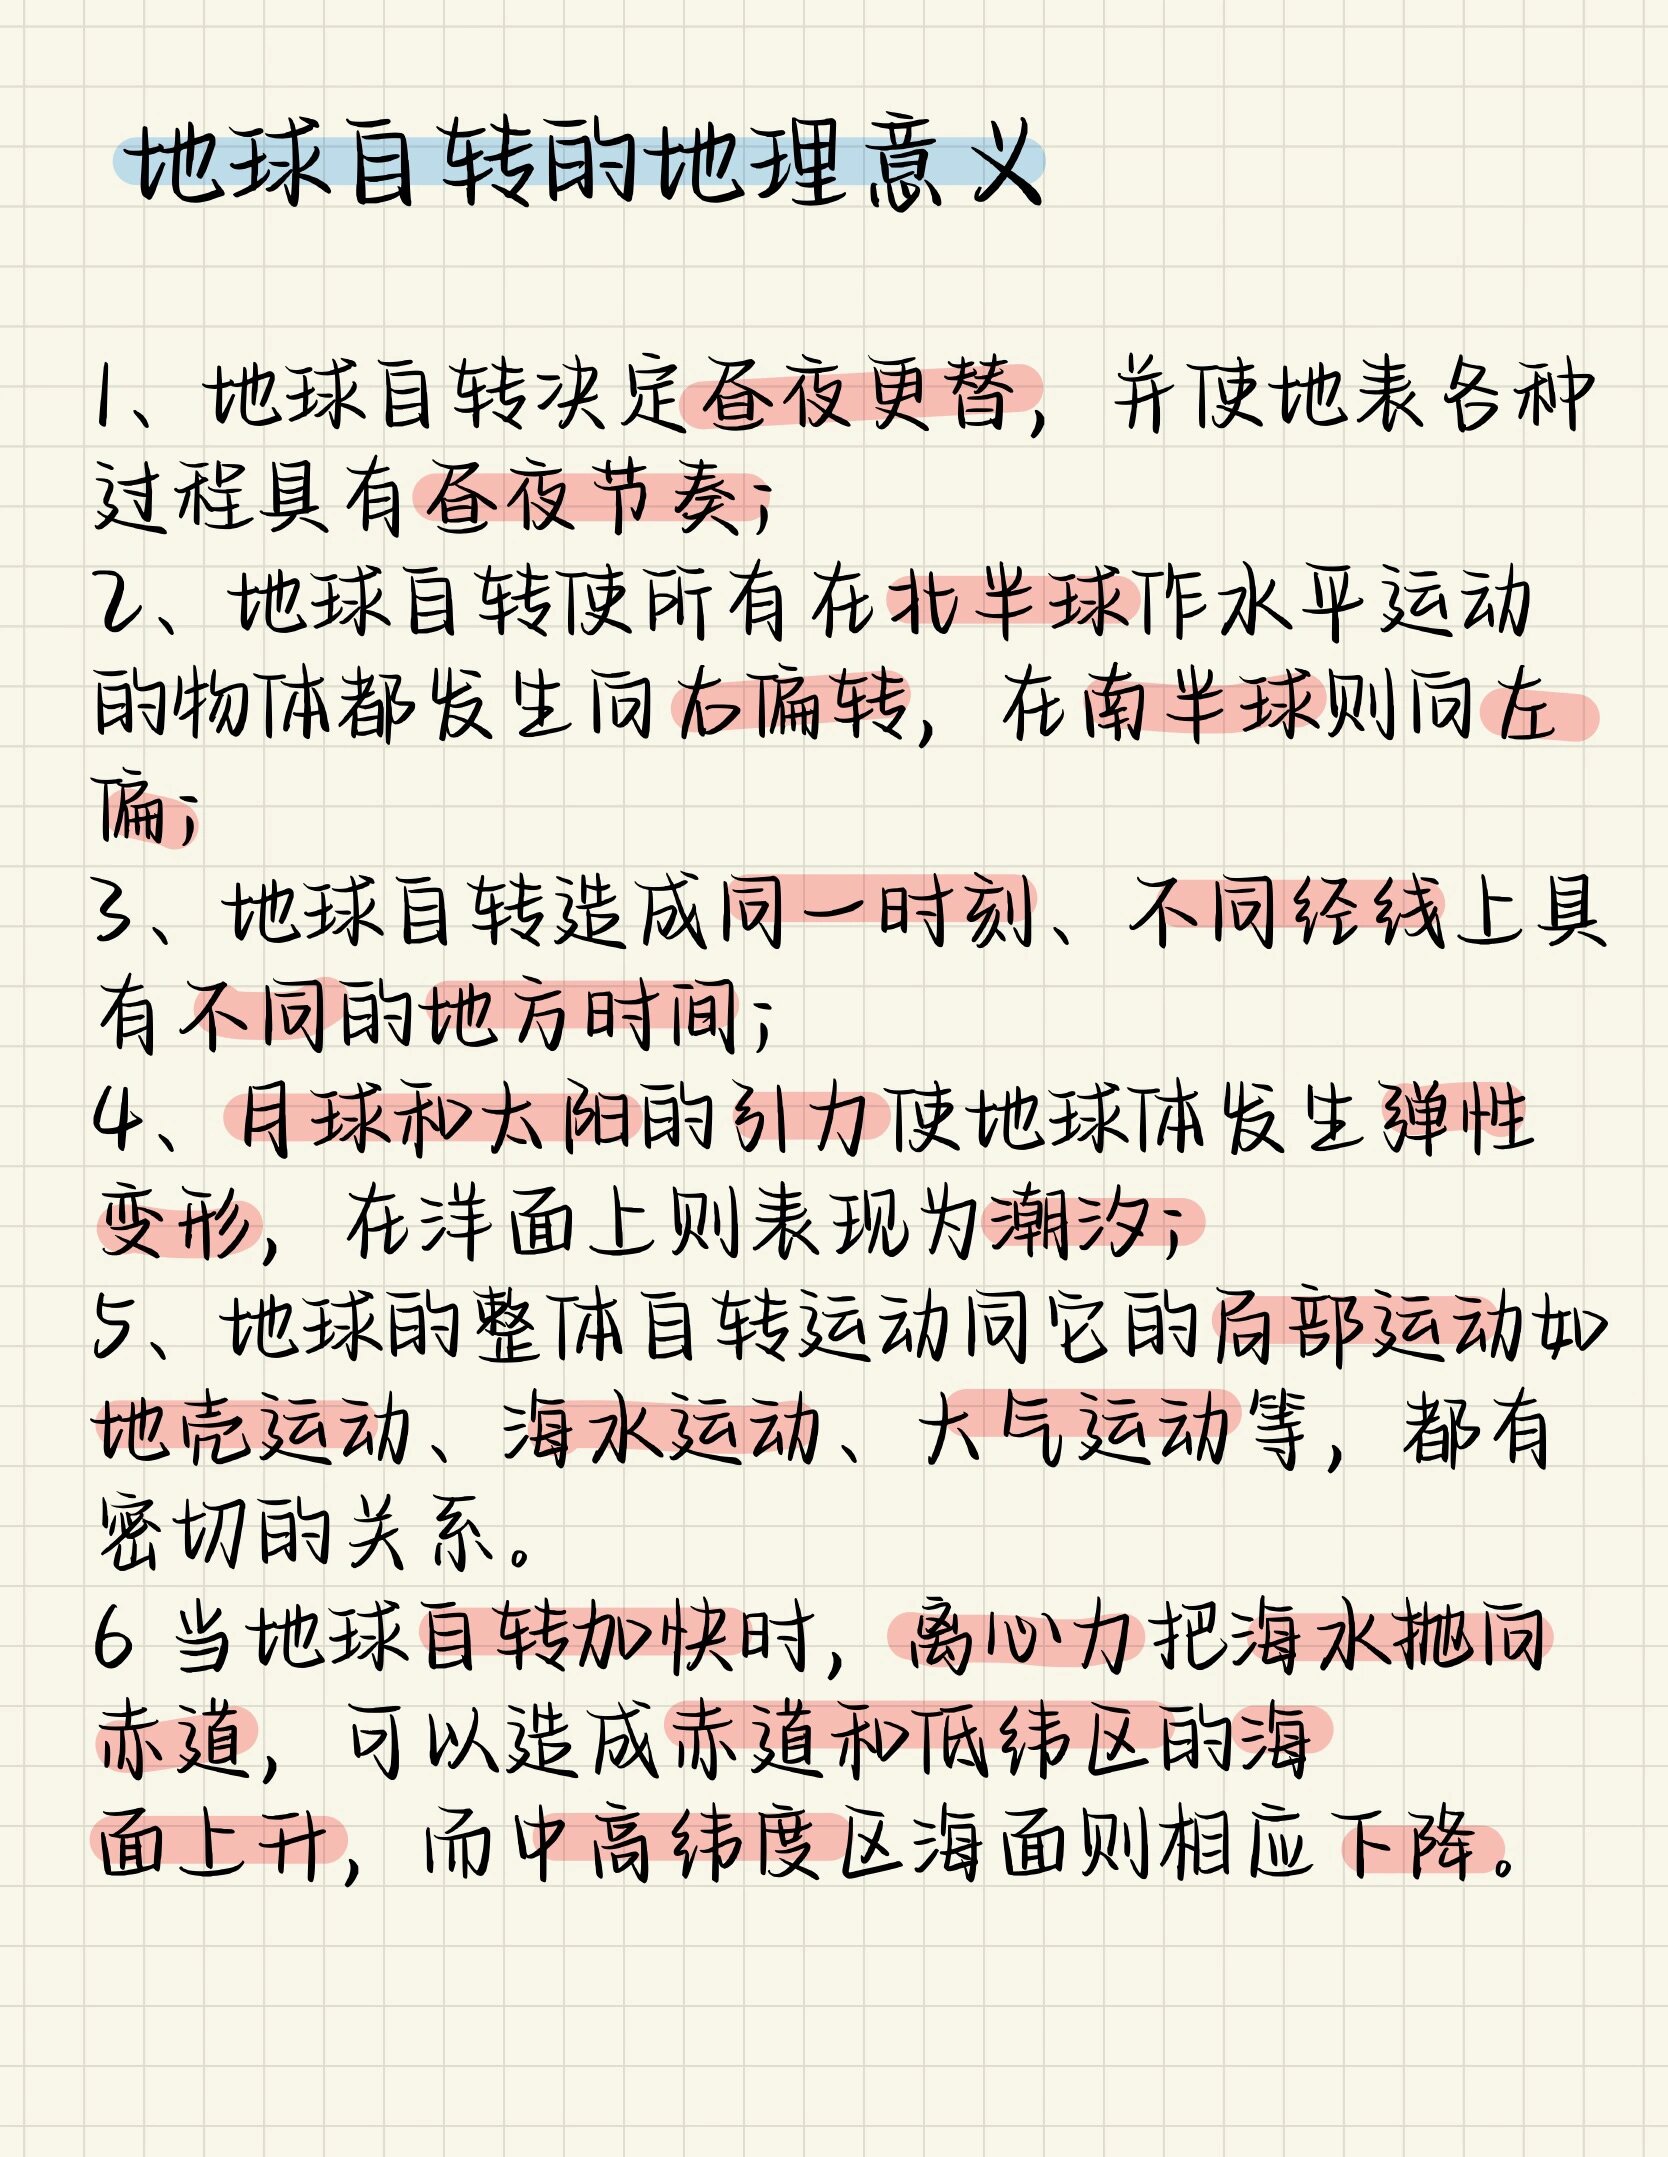 地球自转的地理意义
1、地球自转决定昼夜更替，并使地表各种
过程具有昼夜节奏；
2、地球自转使所有在北半球作水平运动
的物体都发生向右偏转，在南半球则向左
偏；
3、地球自转造成同一时刻、不同经线上具
有不同的地方时间；
4、月球和太阳的引力使地球体发生弹性
变形，在洋面上则表现为潮汐；
5、地球的整体自转运动同它的局部运动如
地壳运动、海水运动、大气运动等，都有
密切的关系。
6 当地球自转加快时，离心力把海水抛向
赤道，可以造成赤道和低纬区的海
面上升，而中高纬度区海面则相应下降。